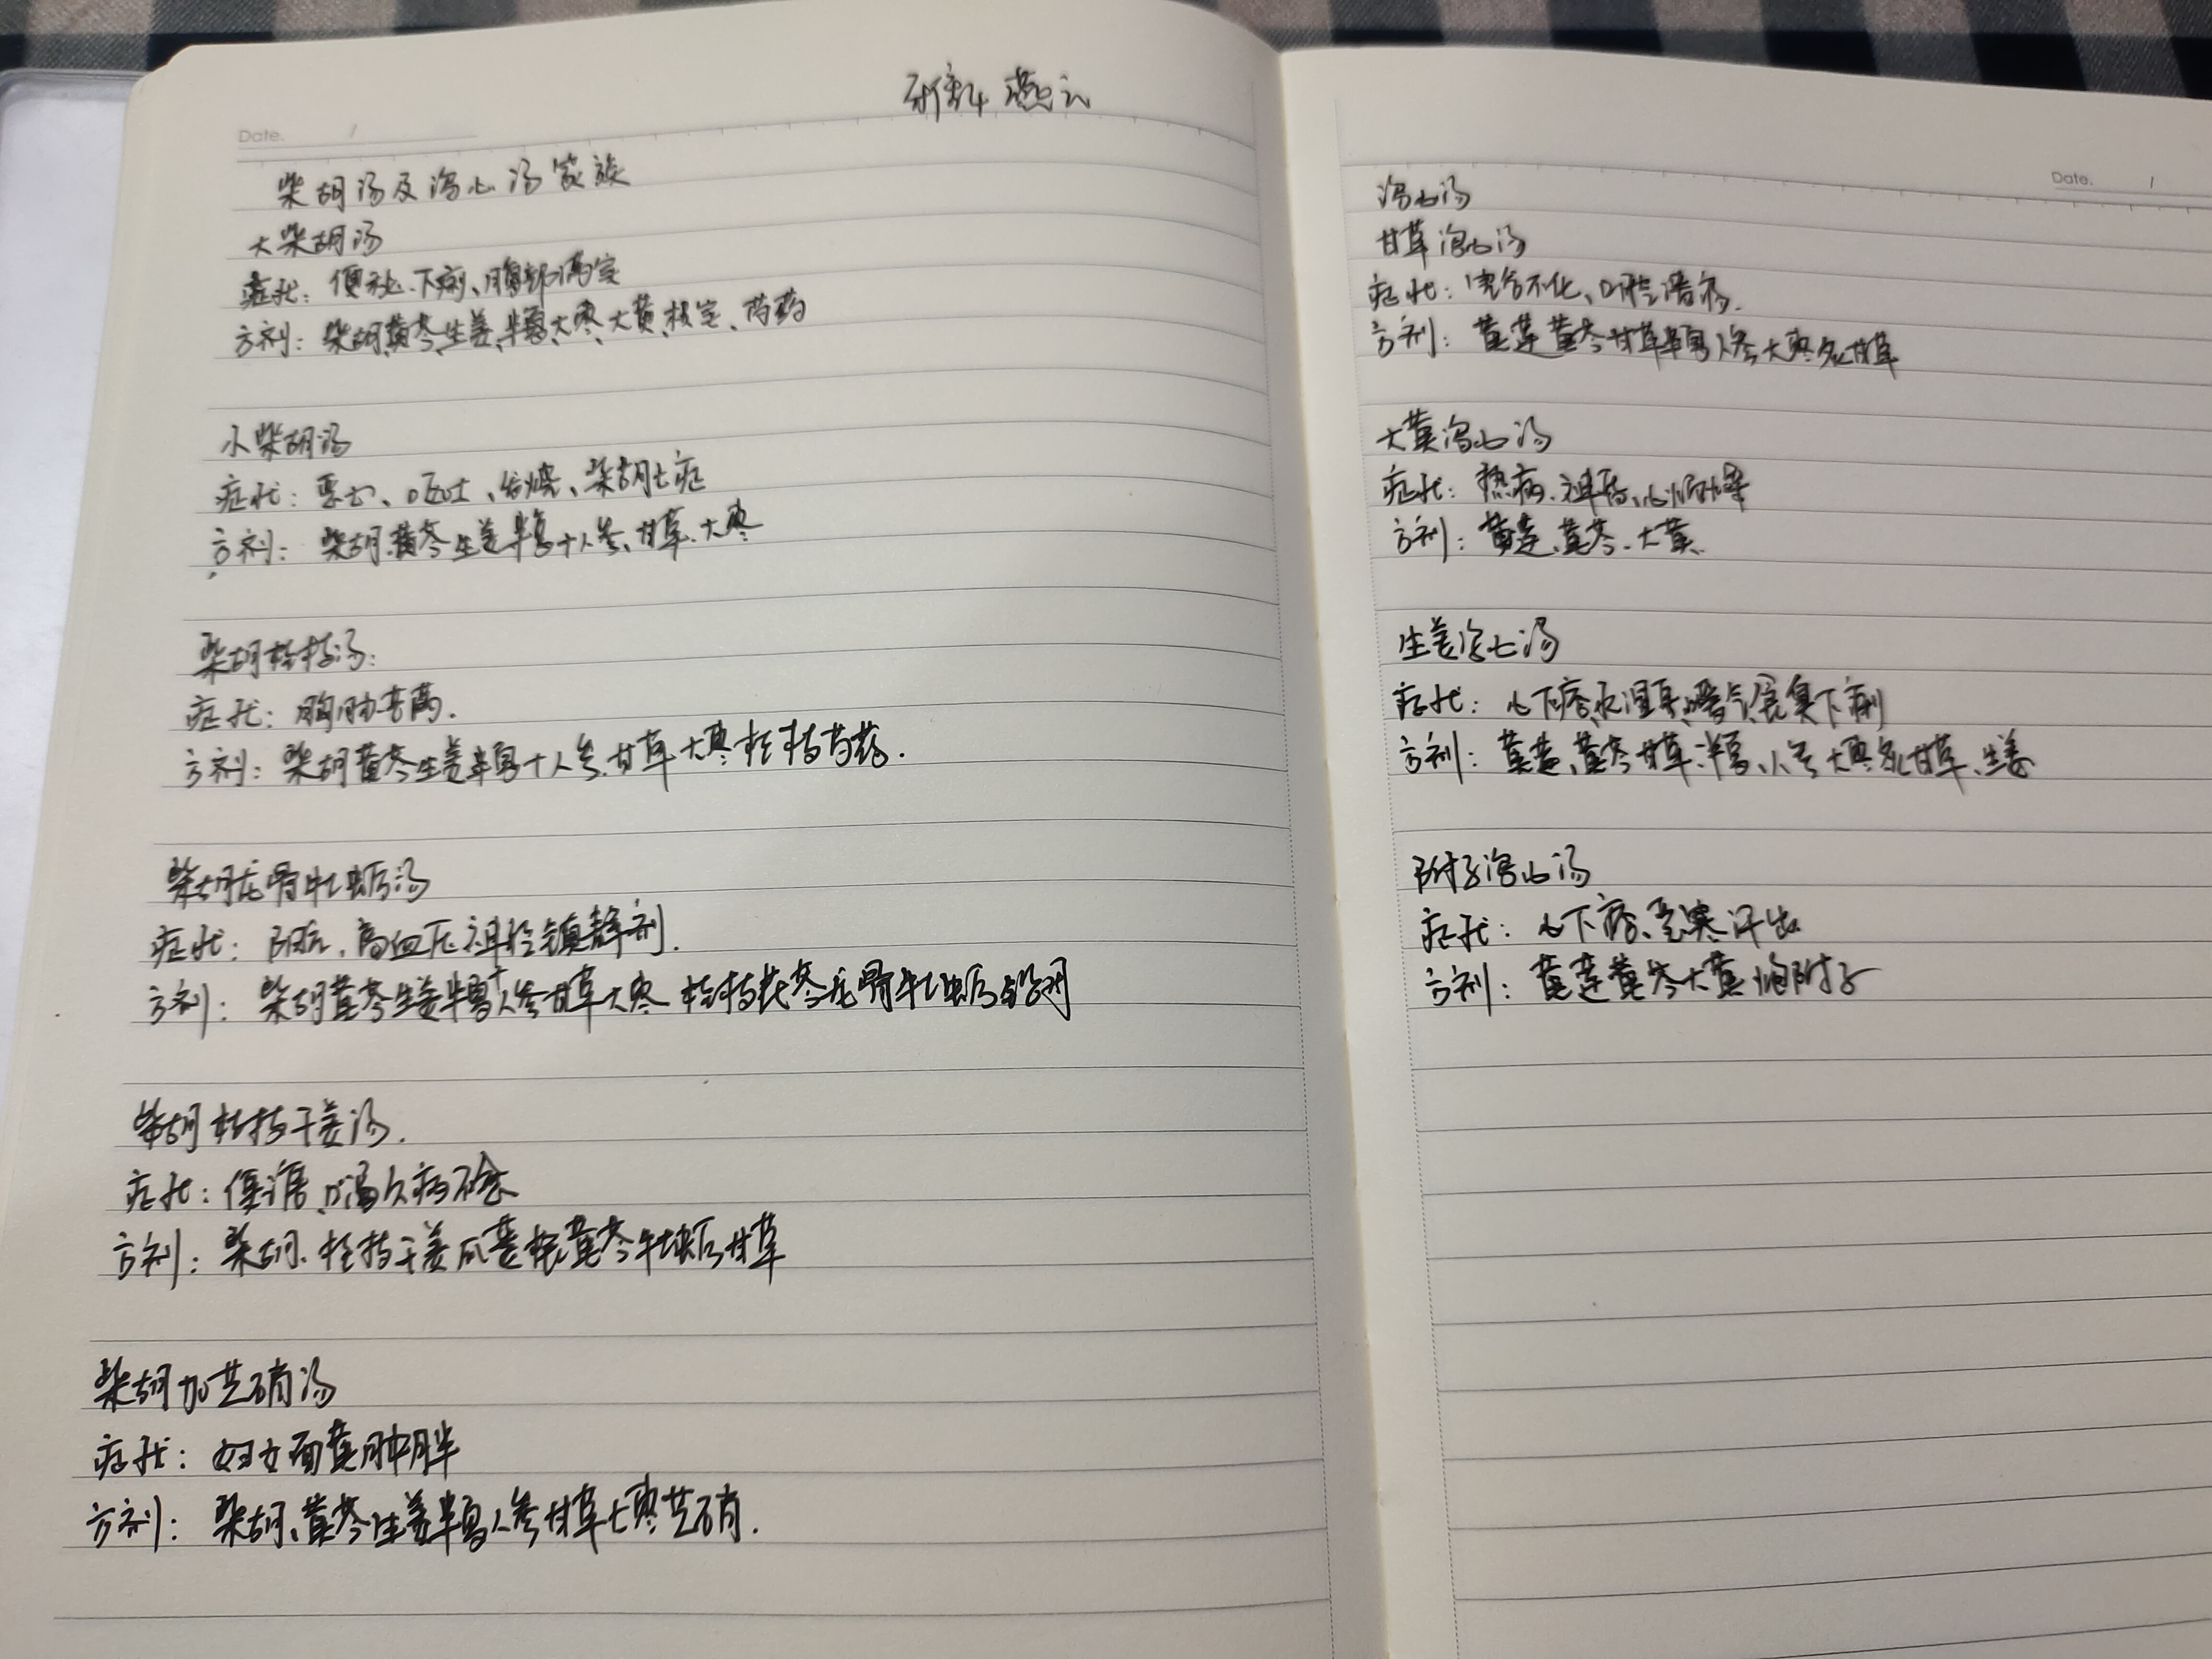 研修4 燕云
Date.
柴胡汤及泻心汤家族
大柴胡汤
症状：便秘、下痢、腹部满实
方剂：柴胡、黄芩、生姜、半夏、大枣、大黄、枳实、芍药
小柴胡汤
症状：恶心、呕吐、发烧、柴胡七症
方剂：柴胡、黄芩生姜半夏+人参、甘草、大枣
柴胡桂枝汤：
症状：胸胁苦满.
方剂：柴胡黄芩生姜半夏+人参、甘草大枣桂枝芍药.
柴胡龙骨牡蛎汤
症状：高血压 镇静剂.
方剂：柴胡黄芩生姜半夏+人参甘草大枣 桂枝茯苓龙骨牡蛎铅丹
柴胡桂枝干姜汤.
症状：便溏、口渴久病不愈
方剂：柴胡、桂枝干姜瓜蒌根黄芩牡蛎甘草
柴胡加芒硝汤
症状：妇女面黄肿胖
方剂：柴胡、黄芩生姜半夏人参甘草大枣芒硝.
Date.
泻心汤
甘草泻心汤
症状：完谷不化、口腔溃疡.
方剂：黄连黄芩甘草半夏人参大枣炙甘草
大黄泻心汤
症状：热病、心烦躁
方剂：黄连、黄芩、大黄、
生姜泻心汤
症状：心下痞、水湿 嗳气 臭下痢
方剂：黄连、黄芩甘草、半夏、人参大枣炙甘草、生姜
附子泻心汤
症状：心下痞、恶寒汗出
方剂：黄连黄芩大黄炮附子